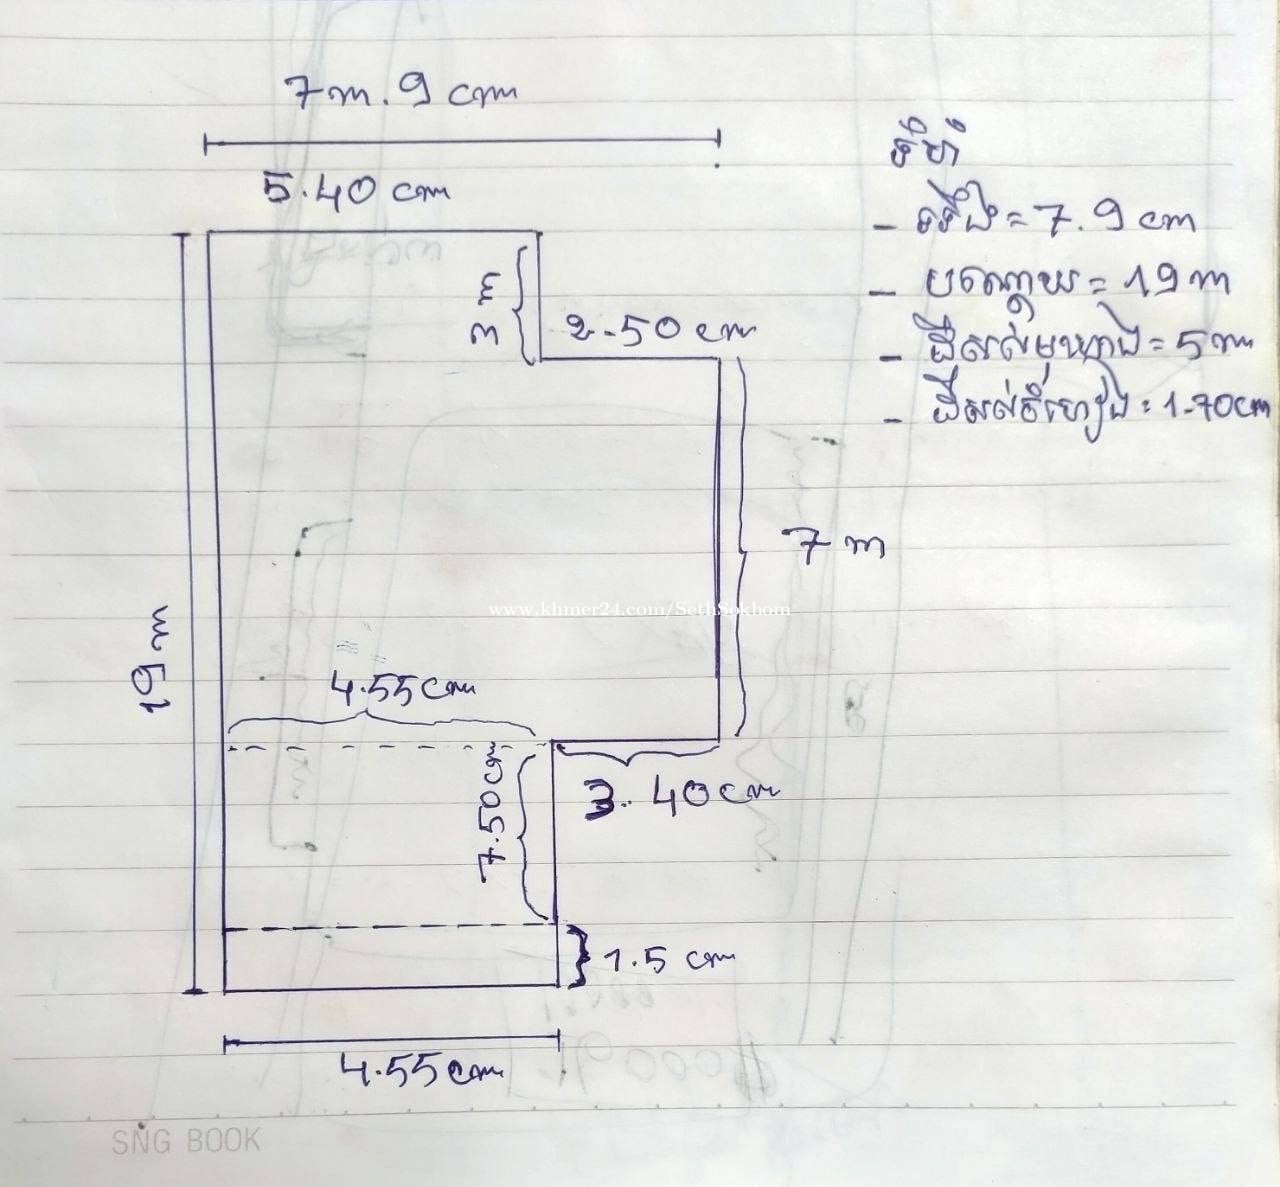 7m.9 cm
5.40 cm
ទំហំ
- ទទឹង = 7.9 cm
- បណ្តោយ = 19 m
3 m
2.50 cm
- ដីសល់មុខរាង = 5 m
- ដីសល់ចំហៀង = 1.70cm
7 m
www.khmer24.com/SethSokhom
19 m
4.55 cm
7.50 cm
3.40 cm
1.5 cm
4.55 cm
SNG BOOK